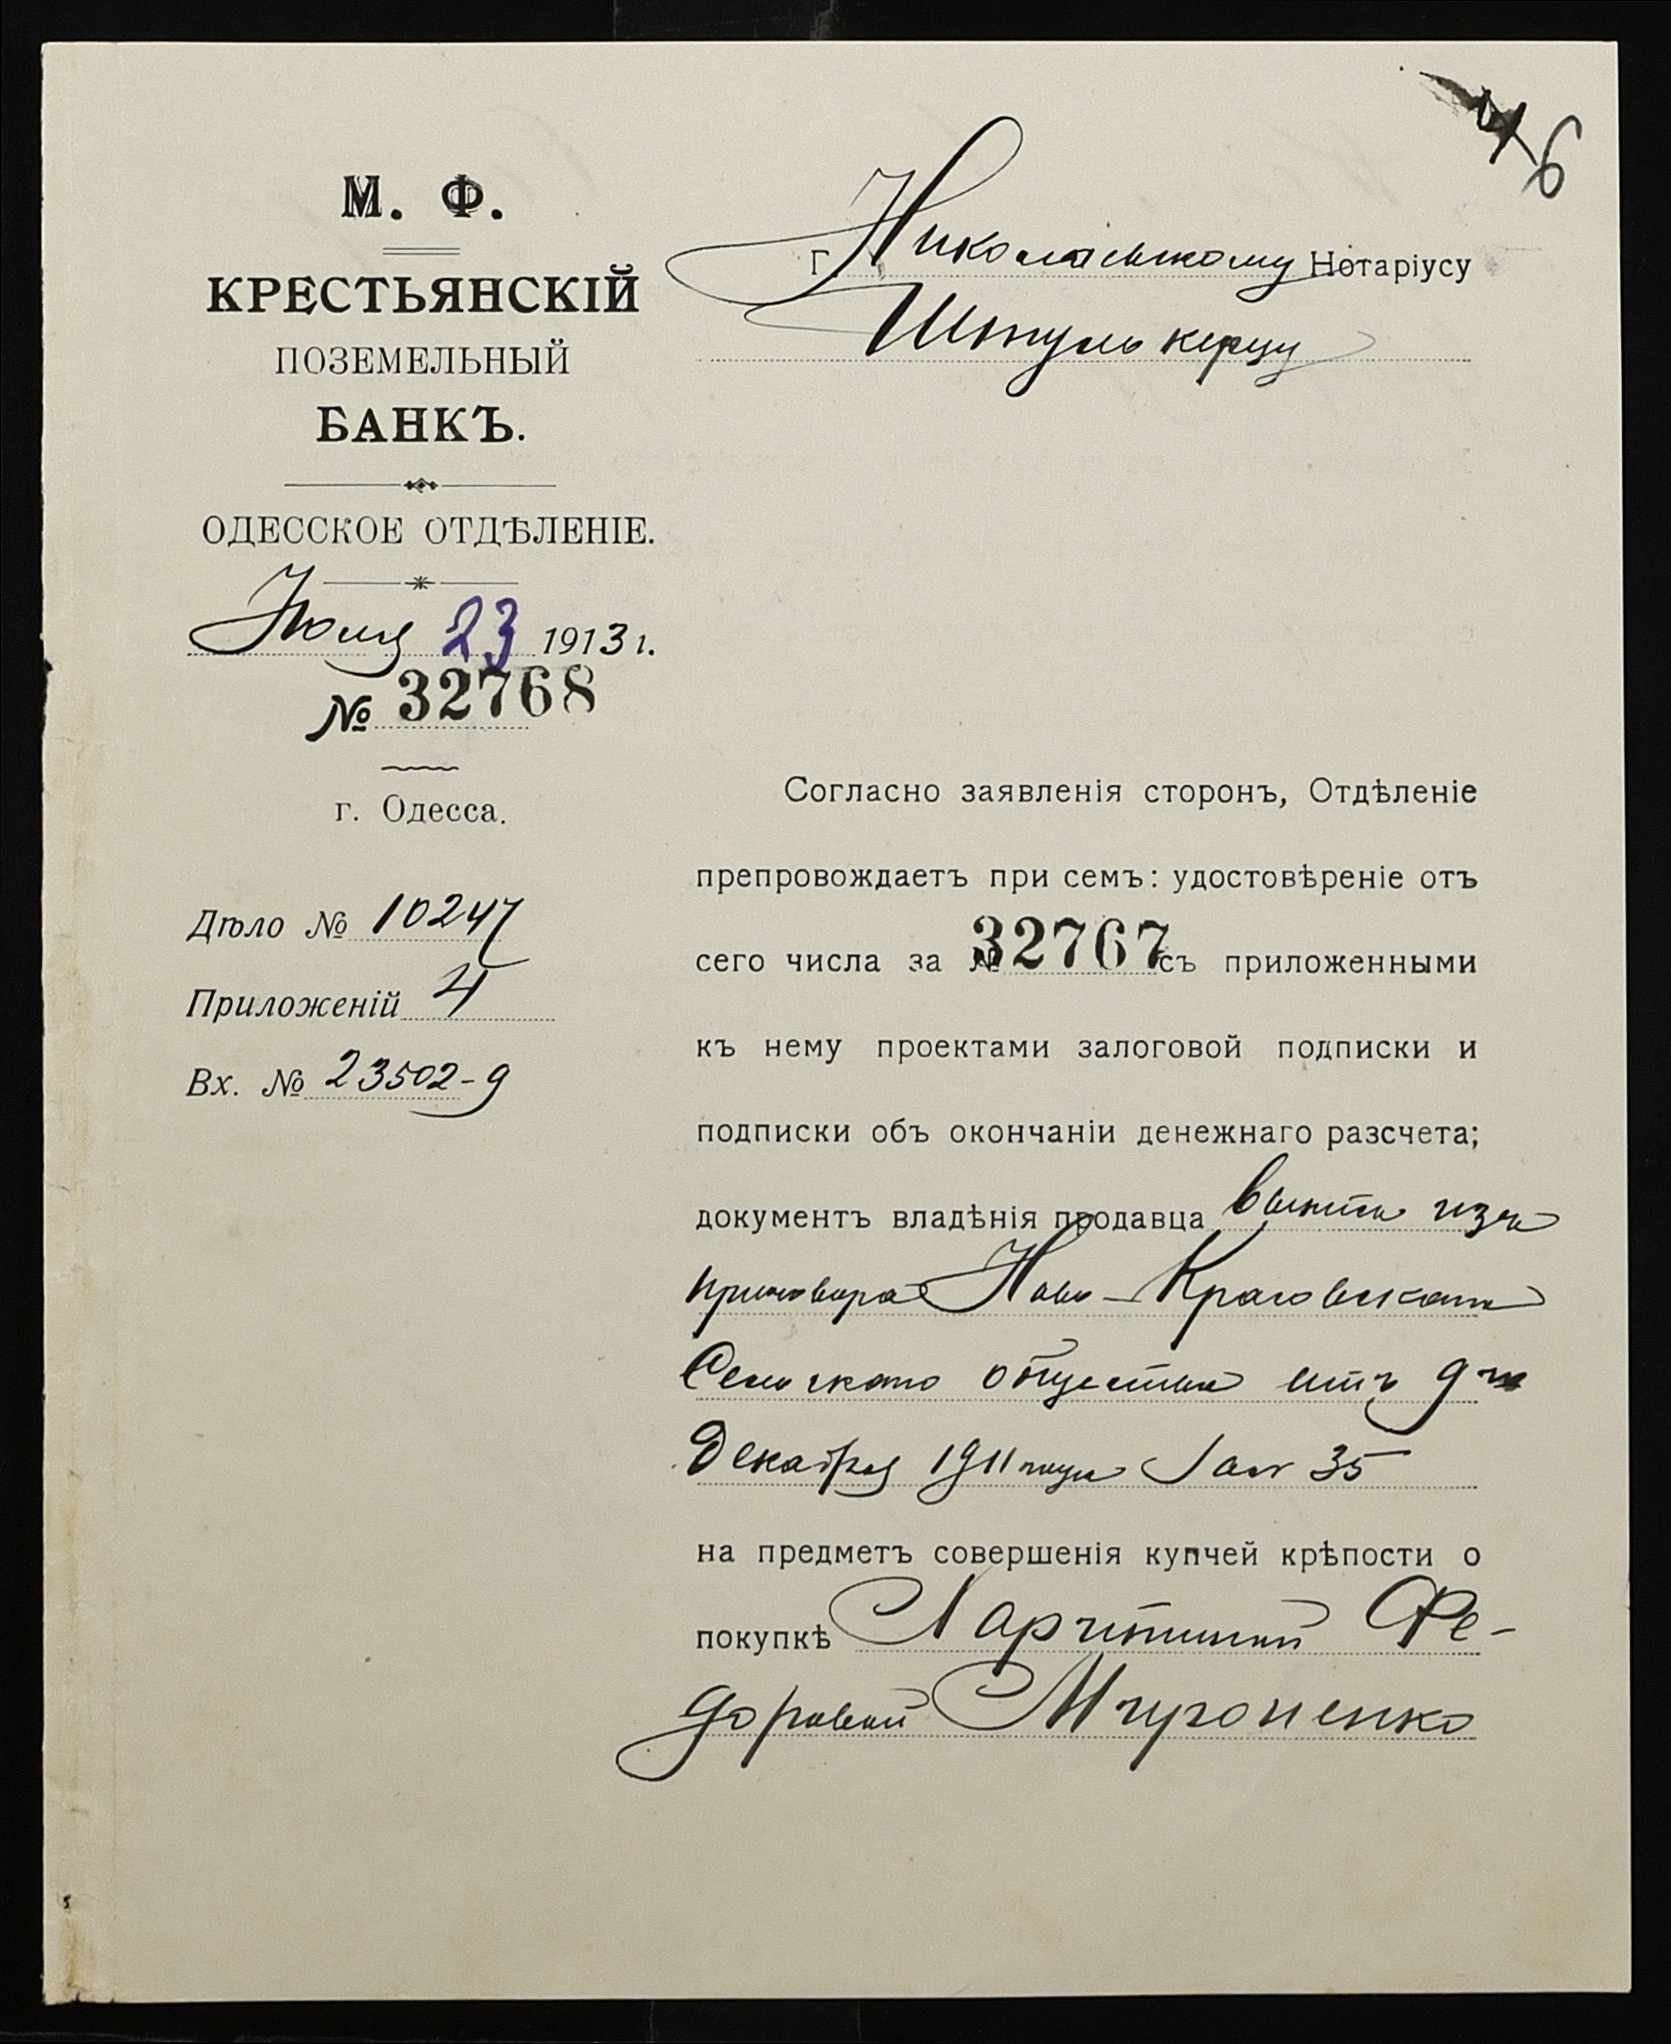 М. Ф.
КРЕСТЬЯНСКІЙ
ПОЗЕМЕЛЬНЫЙ
БАНКЪ.
ОДЕССКОЕ ОТДѢЛЕНІЕ.
23 1913 г.
№ 32768
г. Одесса.
Дѣло № 10247
Приложеній 4
Вх. № 23502-9
6
г. Николаевскому Нотаріусу
Согласно заявленія сторонъ, Отдѣленіе
препровождаетъ при семъ: удостовѣреніе отъ
сего числа за № 32767 съ приложенными
къ нему проектами залоговой подписки и
подписки объ окончаніи денежнаго разсчета;
документъ владѣнія продавца изъ
приговора Ново-
Сельскаго общества отъ 9го
Декабря 1911 года за № 35
на предметъ совершенія купчей крѣпости о
покупкѣ Фе-